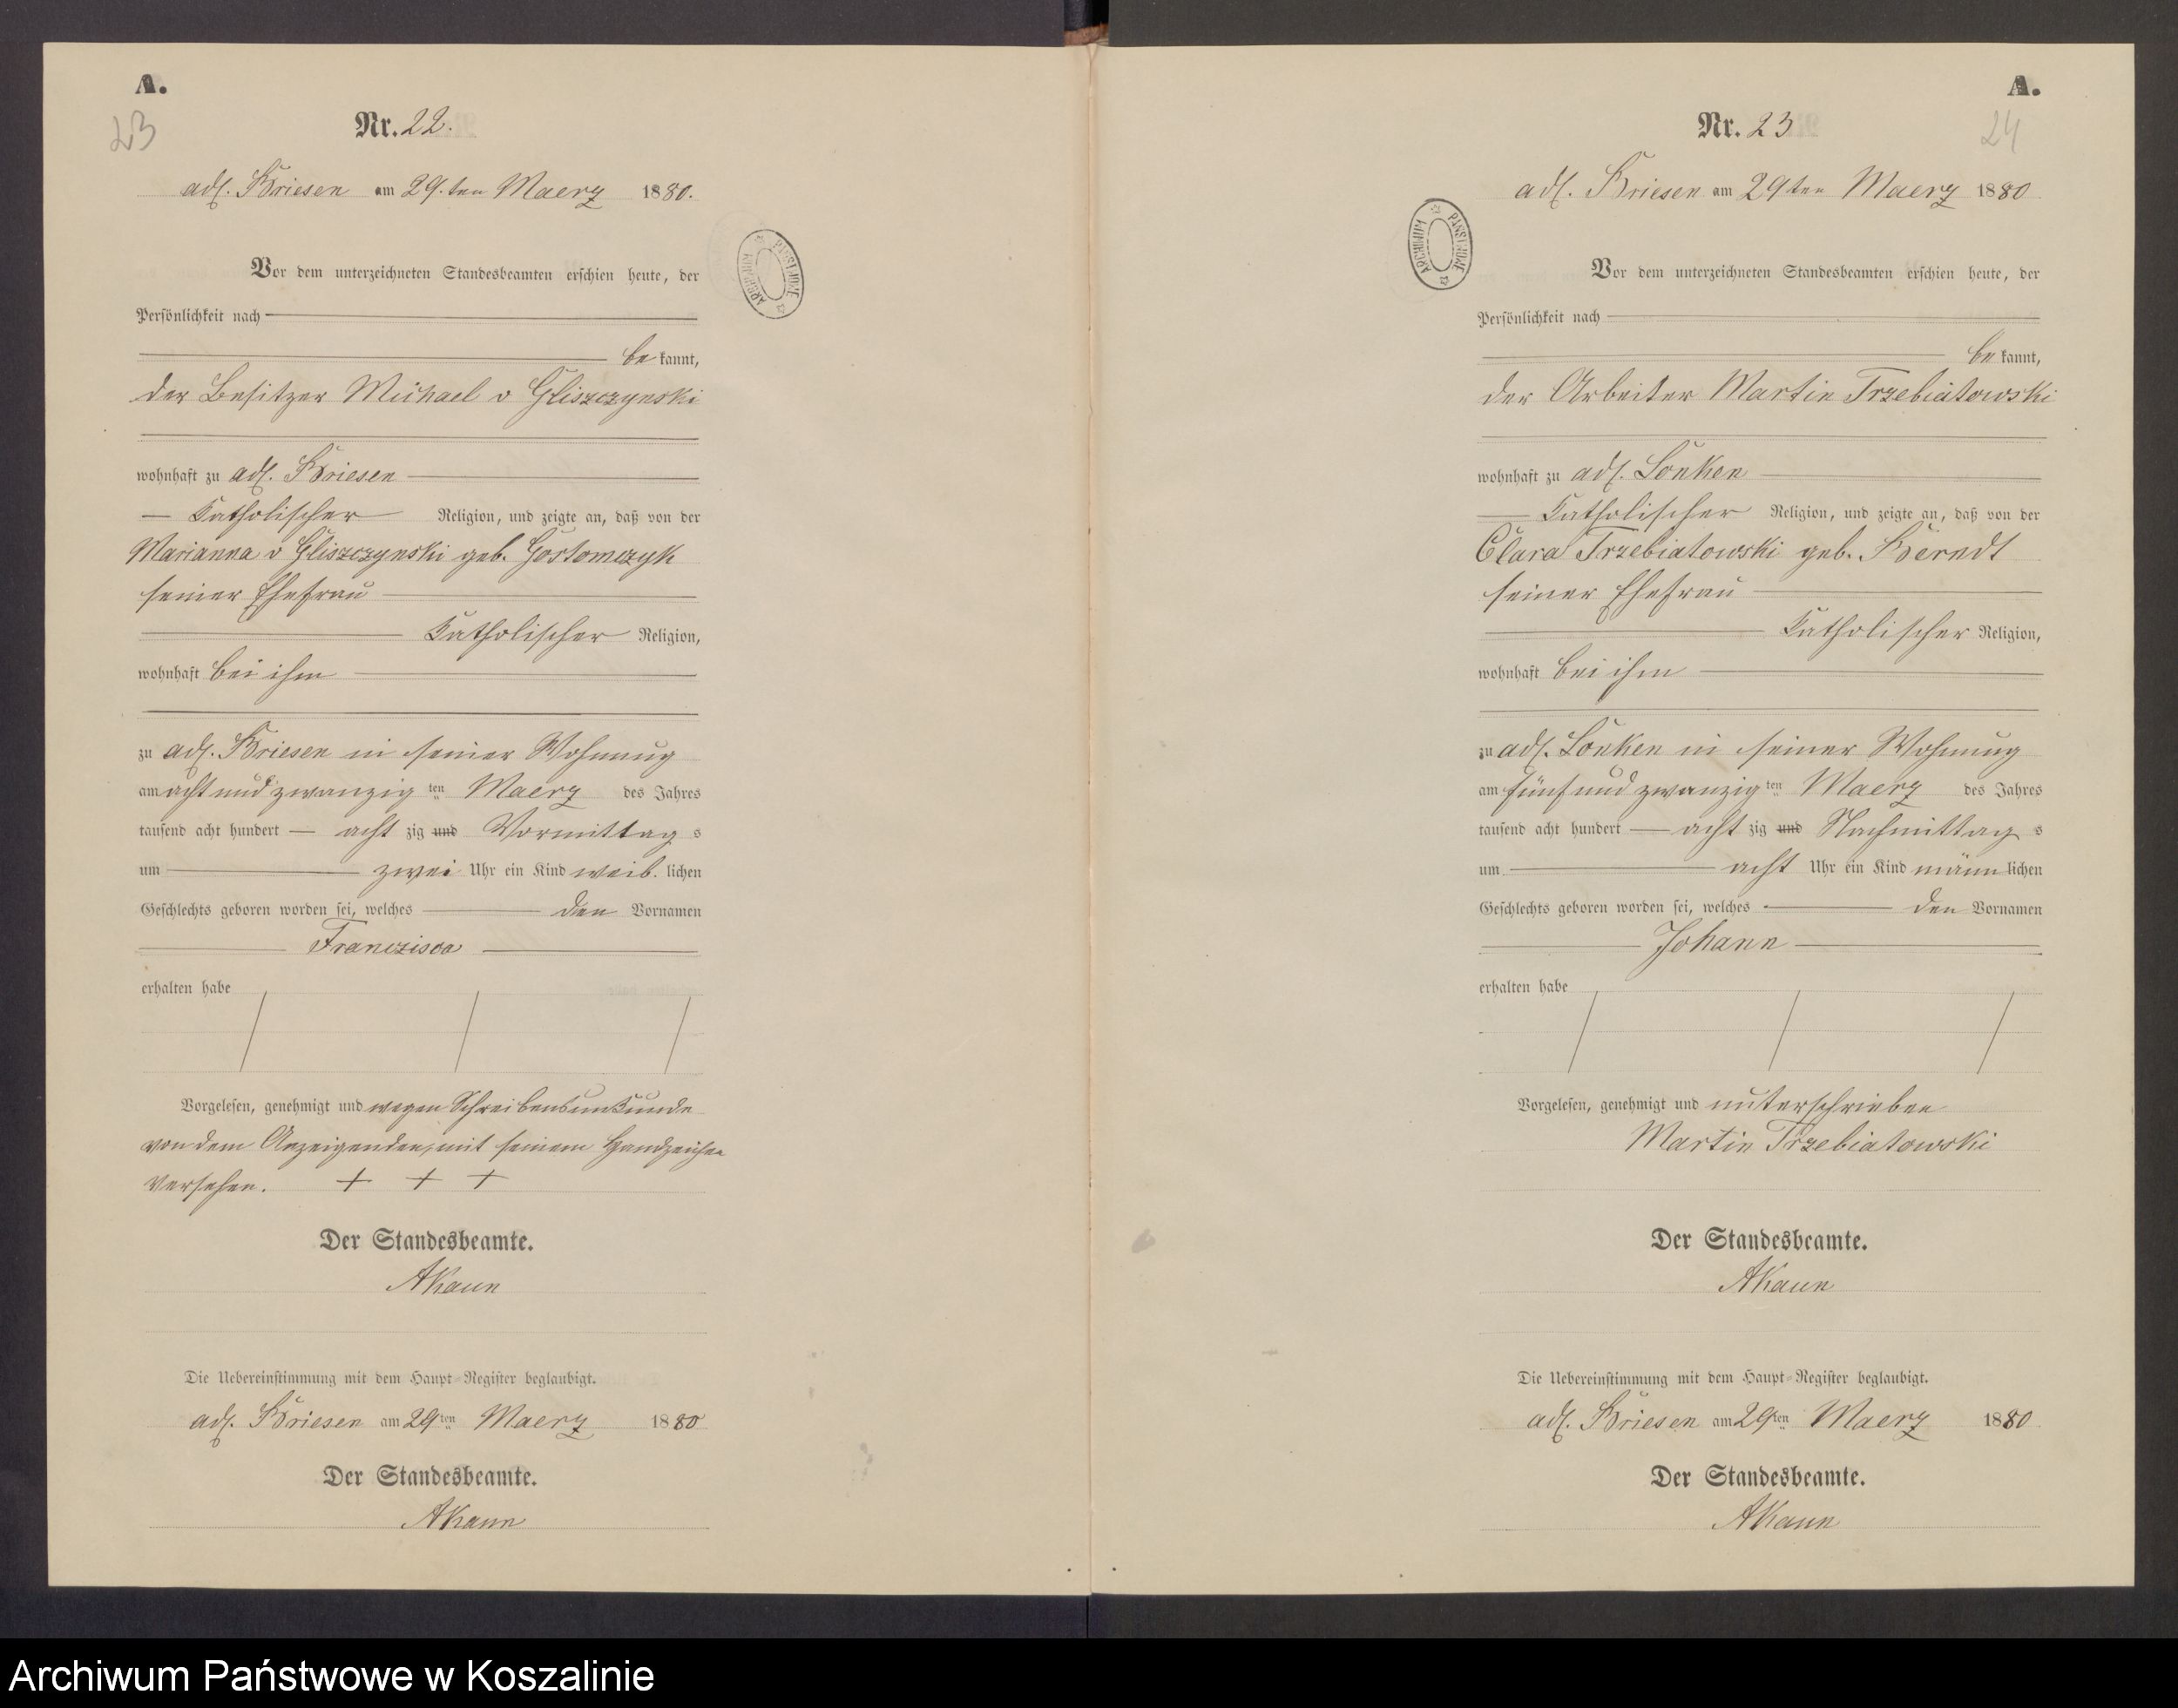 A.
23
Nr. 22.
adl. Briesen am 29.ten Maerz 1880.
Vor dem unterzeichneten Standesbeamten erschien heute, der
Persönlichkeit nach
be kannt,
der Besitzer Michael v Gliszczynski
wohnhaft zu adl. Briesen
Katholischer Religion, und zeigte an, daß von der
Marianna v Gliszczynski geb. Gostomczyk
seiner Ehefrau
Katholischer Religion,
wohnhaft bei ihm
zu adl. Briesen in seiner Wohnung
am acht und zwanzig ten Maerz des Jahres
tausend acht hundert acht zig und Vormittag s
um zwei Uhr ein Kind weib. lichen
Geschlechts geboren worden sei, welches den Vornamen
Franczisca
erhalten habe
Vorgelesen, genehmigt und wegen Schreibensunkunde
von dem Anzeigenden, mit seinem Handzeichen
versehen. + + +
Der Standesbeamte.
AKaun
Die Uebereinstimmung mit dem Haupt-Register beglaubigt.
adl. Briesen am 29ten Maerz 1880
Der Standesbeamte.
AKaun
ARCHIWUM PAŃSTWOWE
A.
24
Nr. 23
adl. Briesen am 29ten Maerz 1880
Vor dem unterzeichneten Standesbeamten erschien heute, der
Persönlichkeit nach
be kannt,
der Arbeiter Martin Trzebiatowski
wohnhaft zu adl. Lonken
Katholischer Religion, und zeigte an, daß von der
Clara Trzebiatowski geb. Berndt
seiner Ehefrau
Katholischer Religion,
wohnhaft bei ihm
zu adl. Lonken in seiner Wohnung
am fünf und zwanzig ten Maerz des Jahres
tausend acht hundert acht zig und Nachmittag s
um acht Uhr ein Kind männ lichen
Geschlechts geboren worden sei, welches den Vornamen
Johann
erhalten habe
Vorgelesen, genehmigt und unterschrieben
Martin Trzebiatowski
Der Standesbeamte.
AKaun
Die Uebereinstimmung mit dem Haupt-Register beglaubigt.
adl. Briesen am 29ten Maerz 1880
Der Standesbeamte.
AKaun
ARCHIWUM PAŃSTWOWE
Archiwum Państwowe w Koszalinie